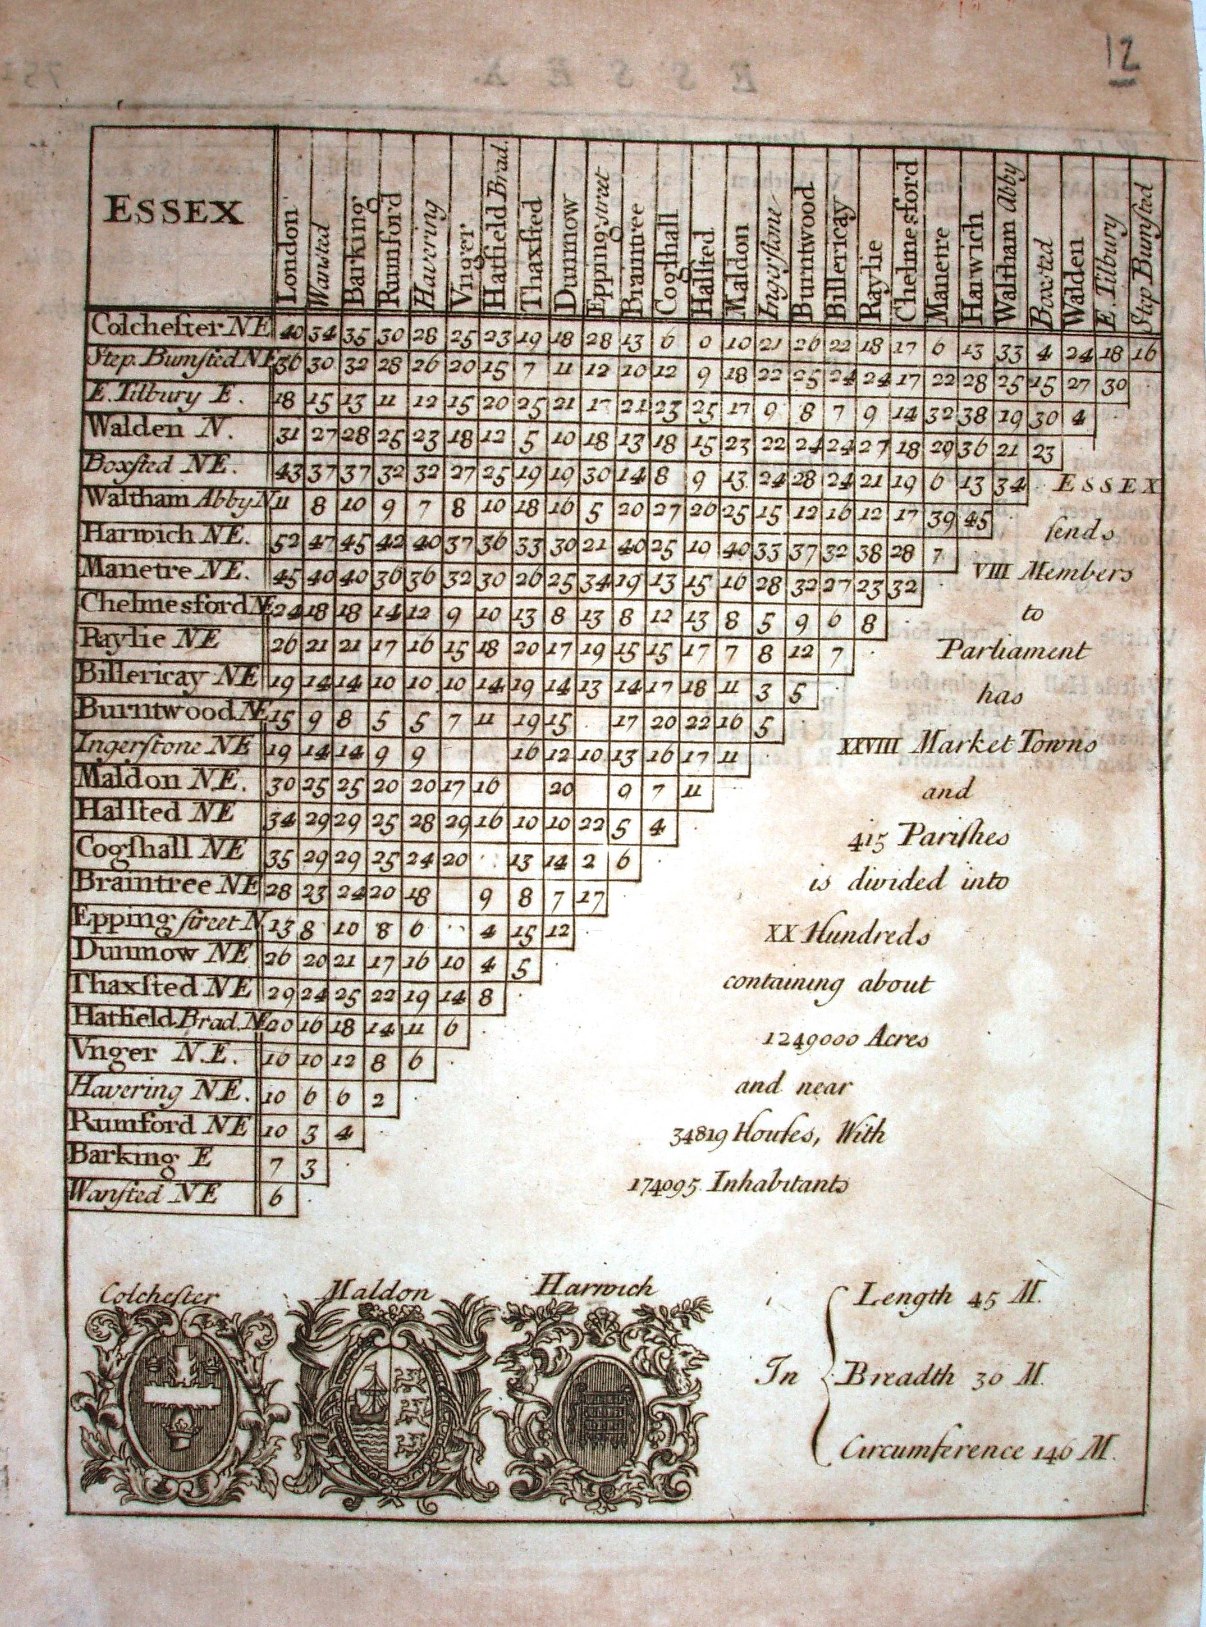 12
ESSEX
London
Wansted
Barking
Rumford
Havering
Vnger
Hatfield Brad.
Thaxsted
Dunmow
Epping street
Braintree
Cogshall
Halsted
Maldon
Ingerstone
Burntwood
Billericay
Raylie
Chelmesford
Manetre
Harwich
Waltham Abby
Boxsted
Walden
E. Tilbury
Step Bumsted
Colchester NE 40 34 35 30 28 25 23 19 18 28 13 6 0 10 21 26 22 18 17 6 13 33 4 24 18 16
Step. Bumsted NE 36 30 32 28 26 20 15 7 11 12 10 12 9 18 22 25 24 24 17 22 28 25 15 27 30
E. Tilbury E. 18 15 13 11 12 15 20 25 21 17 21 23 25 17 9 8 7 9 14 32 38 19 30 4
Walden N. 31 27 28 25 23 18 12 5 10 18 13 18 15 23 22 24 24 27 18 29 36 21 23
Boxsted NE. 43 37 37 32 32 27 25 19 19 30 14 8 9 13 24 28 24 21 19 6 13 34
Waltham Abby N 11 8 10 9 7 8 10 18 16 5 20 27 26 25 15 12 16 12 17 39 45
Harwich NE. 52 47 45 42 40 37 36 33 30 21 40 25 10 40 33 37 32 38 28 7
Manetre NE. 45 40 40 36 36 32 30 26 25 34 19 13 15 16 28 32 27 23 32
Chelmesford NE 24 18 18 14 12 9 10 13 8 13 8 12 13 8 5 9 6 8
Raylie NE 26 21 21 17 16 15 18 20 17 19 15 15 17 7 8 12 7
Billericay NE 19 14 14 10 10 10 14 19 14 13 14 17 18 11 3 5
Burntwood NE 15 9 8 5 5 7 11 19 15 17 20 22 16 5
Ingerstone NE 19 14 14 9 9 16 12 10 13 16 17 11
Maldon NE. 30 25 25 20 20 17 16 20 9 7 11
Halsted NE 34 29 29 25 28 29 16 10 10 22 5 4
Cogshall NE 35 29 29 25 24 20 13 14 2 6
Braintree NE 28 23 24 20 18 9 8 7 17
Epping street N 13 8 10 8 6 4 15 12
Dunmow NE 26 20 21 17 16 10 4 5
Thaxsted NE 29 24 25 22 19 14 8
Hatfield Brad. NE 20 16 18 14 11 6
Vnger N.E. 10 10 12 8 6
Havering NE. 10 6 6 2
Rumford NE 10 3 4
Barking E 7 3
Wansted NE 6
ESSEX
sends
VIII Members
to
Parliament
has
XXVIII Market Towns
and
415 Parishes
is divided into
XX Hundreds
containing about
1249000 Acres
and near
34819 Houses, With
174095 Inhabitants
Colchester
Maldon
Harwich
In
Length 45 M.
Breadth 30 M.
Circumference 146 M.